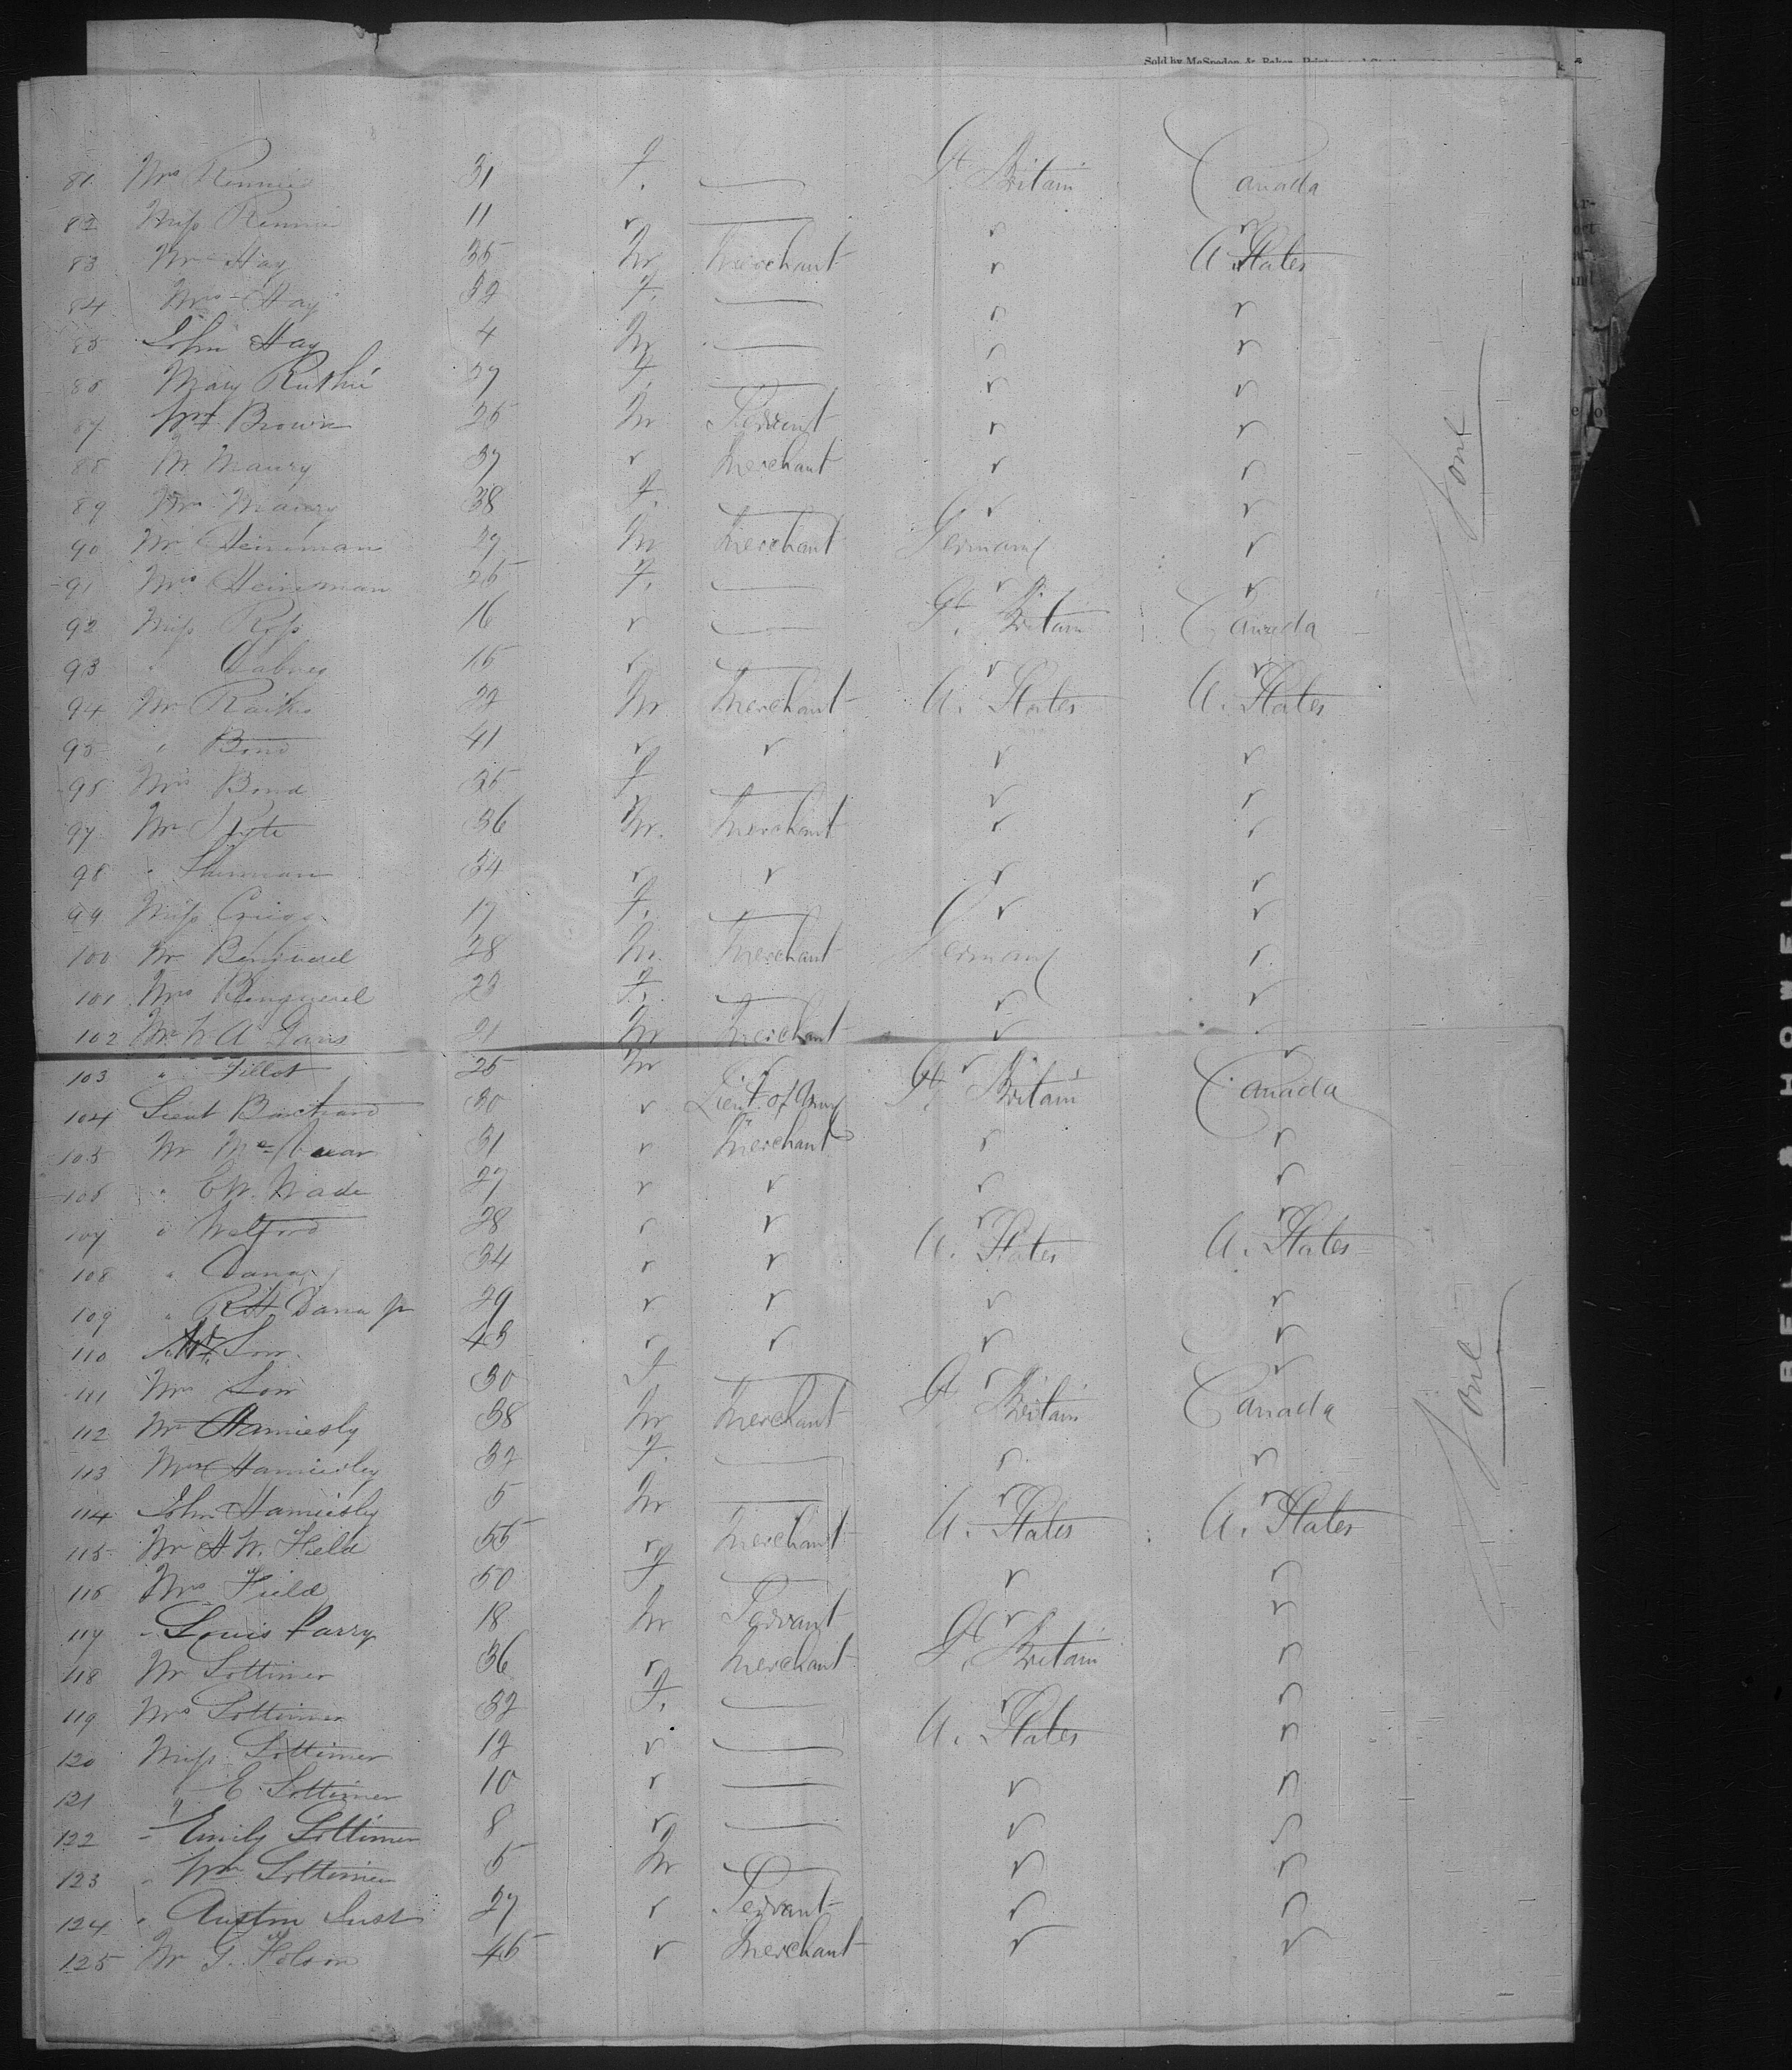 Sold by McSpedon & Baker, Printers
81 Mrs Rennie 31 F. — Gt. Britain Canada
82 Miss Rennie 11 " — " "
83 Mr Hay 35 M Merchant " U. States
84 Mrs Hay 32 F. — " "
85 John Hay 4 M — " "
86 Mary Ruthie 27 F. — " "
87 Wm Brown 25 M Servant " "
88 Mr Maury 37 " Merchant " "
89 Mrs Maury 38 F. — " "
90 Mr Heineman 29 M Merchant Germany "
91 Mrs Heineman 25 F. — " "
92 Miss Ross 16 " — Gt. Britain Canada
93 " Dabney 15 " — " "
94 Mr Raiks 32 M Merchant U. States U. States
95 " Bond 41 " " " "
96 Mrs Bond 35 F — " "
97 Mr 36 M. Merchant " "
98 " Sherman 34 " " " "
99 Miss 17 F. — " "
100 Mr Benquerel 28 M. Merchant Germany "
101 Mrs Benquerel 23 F. — " "
102 Mr W A Gans 21 M Merchant " "
103 " Tillot 25 M " " "
104 Lieut 30 " Lieut. of Army Gt. Britain Canada
105 Mr 31 " Merchant " "
106 " E W. Wade 27 " " " "
107 " Welford 28 " " " "
108 " Dana 34 " " U. States U. States
109 " R H Dana Jr 29 " " " "
110 Mr Low 43 " " " "
111 Mrs Low 30 F — " "
112 Mr Hamiesly 38 M Merchant Gt Britain Canada
113 Mrs Hamiesley 32 F. — " "
114 John Hamiesly 5 M — " "
115 Mr H W. Field 55 " Merchant U. States U. States
116 Mrs Field 50 F — " "
117 " Louis Parry 18 M Servant " "
118 Mr Lottimer 36 " Merchant Gt. Britain "
119 Mrs Lottimer 32 F. — " "
120 Miss Lottimer 12 " — U. States "
121 " E Lottimer 10 " — " "
122 " Emily Lottimer 8 " — " "
123 " Wm Lottimer 5 M — " "
124 " Austin Lust 27 " Servant " "
125 Mr G. Folsom 45 " Merchant " "
None
None
BELL & HOWELL